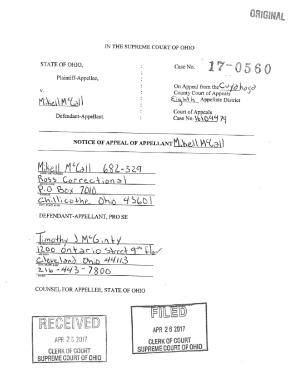 ORIGINAL
IN THE SUPREME COURT OF OHIO
STATE OF OHIO, : Case No. 17-0560
Plaintiff-Appellee, :
: On Appeal from the Cuyahoga
v. : County Court of Appeals
Mikell McCall : Eighth Appellate District
Defendant-Appellant. : Court of Appeals
: Case No.
NOTICE OF APPEAL OF APPELLANT Mikell McCall
Mikell McCall 682-529
Ross Correctional
P.O Box 7010
Chillicothe Ohio 45601
DEFENDANT-APPELLANT, PRO SE
Timothy J McGinty
1200 Ontario street 9th
Cleveland Ohio 44113
216-443-7800
COUNSEL FOR APPELLEE, STATE OF OHIO
RECEIVED
APR 26 2017
CLERK OF COURT
SUPREME COURT OF OHIO
FILED
APR 26 2017
CLERK OF COURT
SUPREME COURT OF OHIO